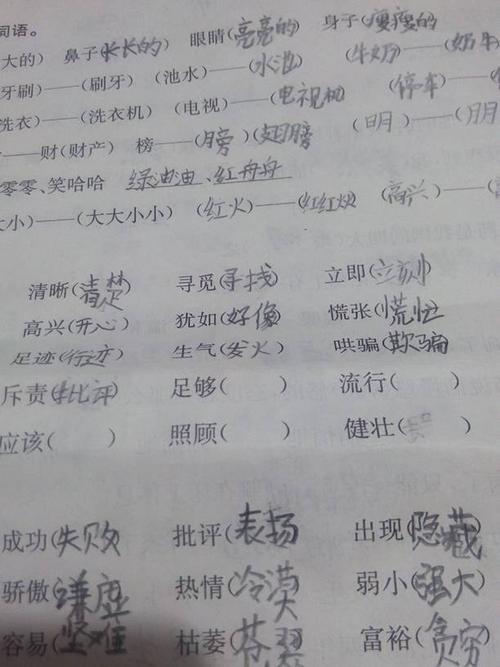 词语。
大的） 鼻子（长长的） 眼睛（亮亮的） 身子（瘦瘦的
牙刷）——（刷牙） （池水）——（水池 （牛奶）——（奶牛
洗衣）——（洗衣机） （电视）——（电视机 （停车）——（
——财（财产） 榜——（膀）（翅膀 （日月）——（
零零、笑哈哈 绿油油、红舟舟
大小）——（大大小小） （红火）——（红红火 （高兴）——（
清晰（清楚 寻觅（寻找） 立即（立刻
高兴（开心） 犹如（好像 慌张（慌忙
足迹（行迹） 生气（发火） 哄骗（欺骗
斥责（批评） 足够（ ） 流行（ ）
应该（ ） 照顾（ ） 健壮（ ）
成功（失败 批评（表扬 出现（隐藏
骄傲（谦虚 热情（冷漠 弱小（强大）
容易（坚难 枯萎（ 富裕（贫穷